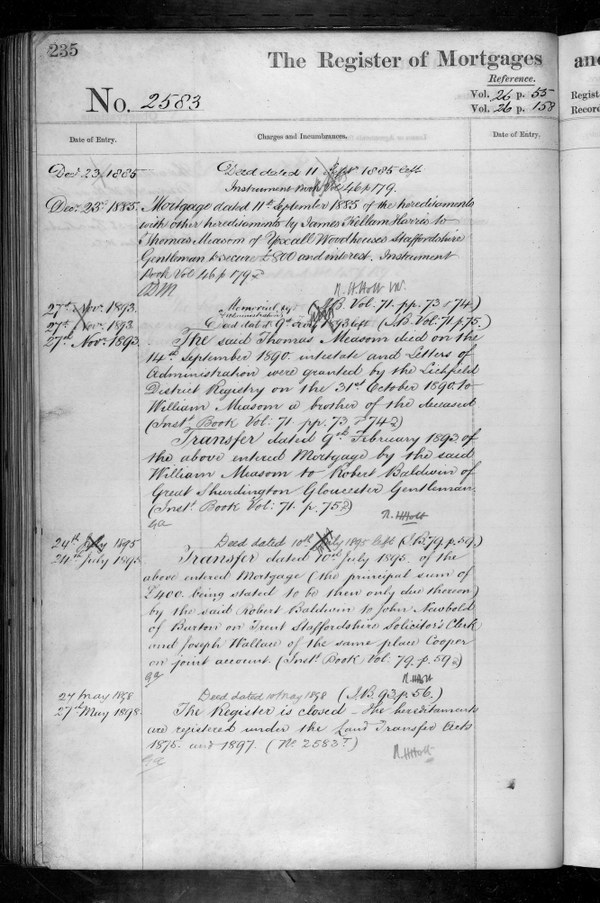 235
The Register of Mortgages
and
Reference.
No. 2583
Vol. 26 p. 55
Vol. 26 p. 158
Regist
Record
Date of Entry.
Charges and Incumbrances.
Date of Entry.
Dec. 23, 1885
Deed dated 11 Sept 1885 left
Instrument Book Vol 46 p 179.
Dec. 23. 1885.
Mortgage dated 11th September 1885 of the hereditaments
with other hereditaments by James Kellam Harris to
Thomas Measom of Yoxall Woodhouses Staffordshire
Gentleman to secure £800 and interest. Instrument
Book Vol 46 p 179
R. H. Holt
27th Nov. 1893.
Memorial (I.B. Vol. 71. pp. 73 & 74.)
Administration
27th Nov. 1893
Deed dated 9th 1893 left (I.B. Vol. 71 p 75.)
27th Nov. 1893
The said Thomas Measom died on the
14th September 1890 intestate and Letters of
Administration were granted by the Lichfield
District Registry on the 31st October 1890 to
William Measom a brother of the deceased
(Inst. Book Vol: 71 pp. 73 & 74)
Transfer dated 9th February 1893 of
the above entered Mortgage by the said
William Measom to Robert Baldwin of
Great Shurdington Gloucester Gentleman.
(Inst. Book Vol: 71. p. 75)
R. H Holt
24th July 1895
Deed dated 10th July 1895 left (I.B. 79. p. 59.)
24th July 1895
Transfer dated 10th July 1895. of the
above entered Mortgage (the principal sum of
£400 being stated to be then only due thereon)
by the said Robert Baldwin to John Newbold
of Burton on Trent Staffordshire Solicitor's Clerk
and Joseph Wallace of the same place Cooper
on joint account. (Inst. Book Vol. 79. p. 59)
R. H Holt
27 May 1898
Deed dated 10 May 1898 (I.B. 93. p. 56.)
27th May 1898.
The Register is closed - the hereditaments
are registered under the Land Transfer Acts
1875. and 1897. (No 2583)
R. H Holt